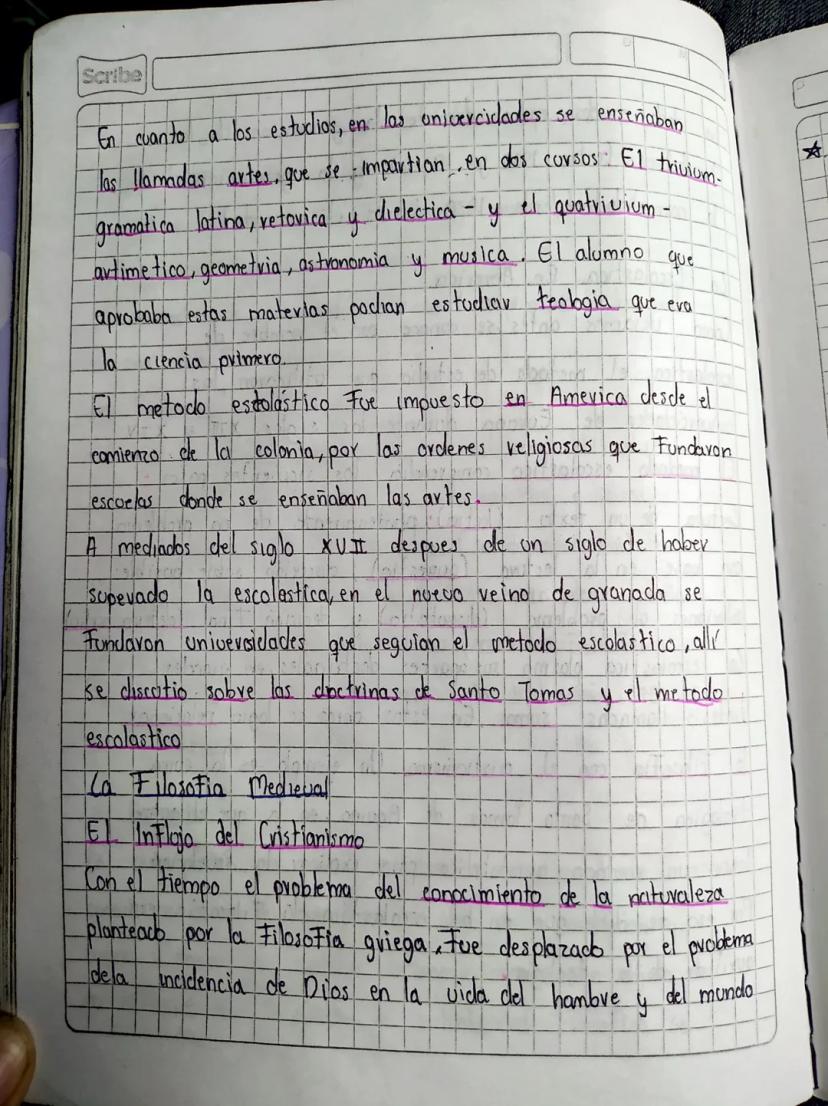 Scribe
En cuanto a los estudios, en las univercidades se enseñaban
las llamadas artes, que se impartian, en dos cursos: El trivium-
gramatica latina, retorica y dielectica - y el quatrivium -
artimetico, geometria, astronomia y musica. El alumno que
aprobaba estas materias podian estudiar teologia que era
la ciencia primero.
El metodo escolástico fue impuesto en America desde el
comienzo de la colonia, por las ordenes religiosas que Fundaron
escuelas donde se enseñaban las artes.
A mediados del siglo XVII despues de un siglo de haber
superado la escolastica, en el nuevo reino de granada se
Fundaron universidades que seguian el metodo escolastico, allí
se discutio sobre las doctrinas de Santo Tomas y el metodo
escolastico
La Filosofia Medieval
El Influjo del Cristianismo
Con el tiempo el problema del conocimiento de la naturaleza
planteado por la Filosofia griega, Fue desplazado por el problema
dela incidencia de Dios en la vida del hombre y del mundo